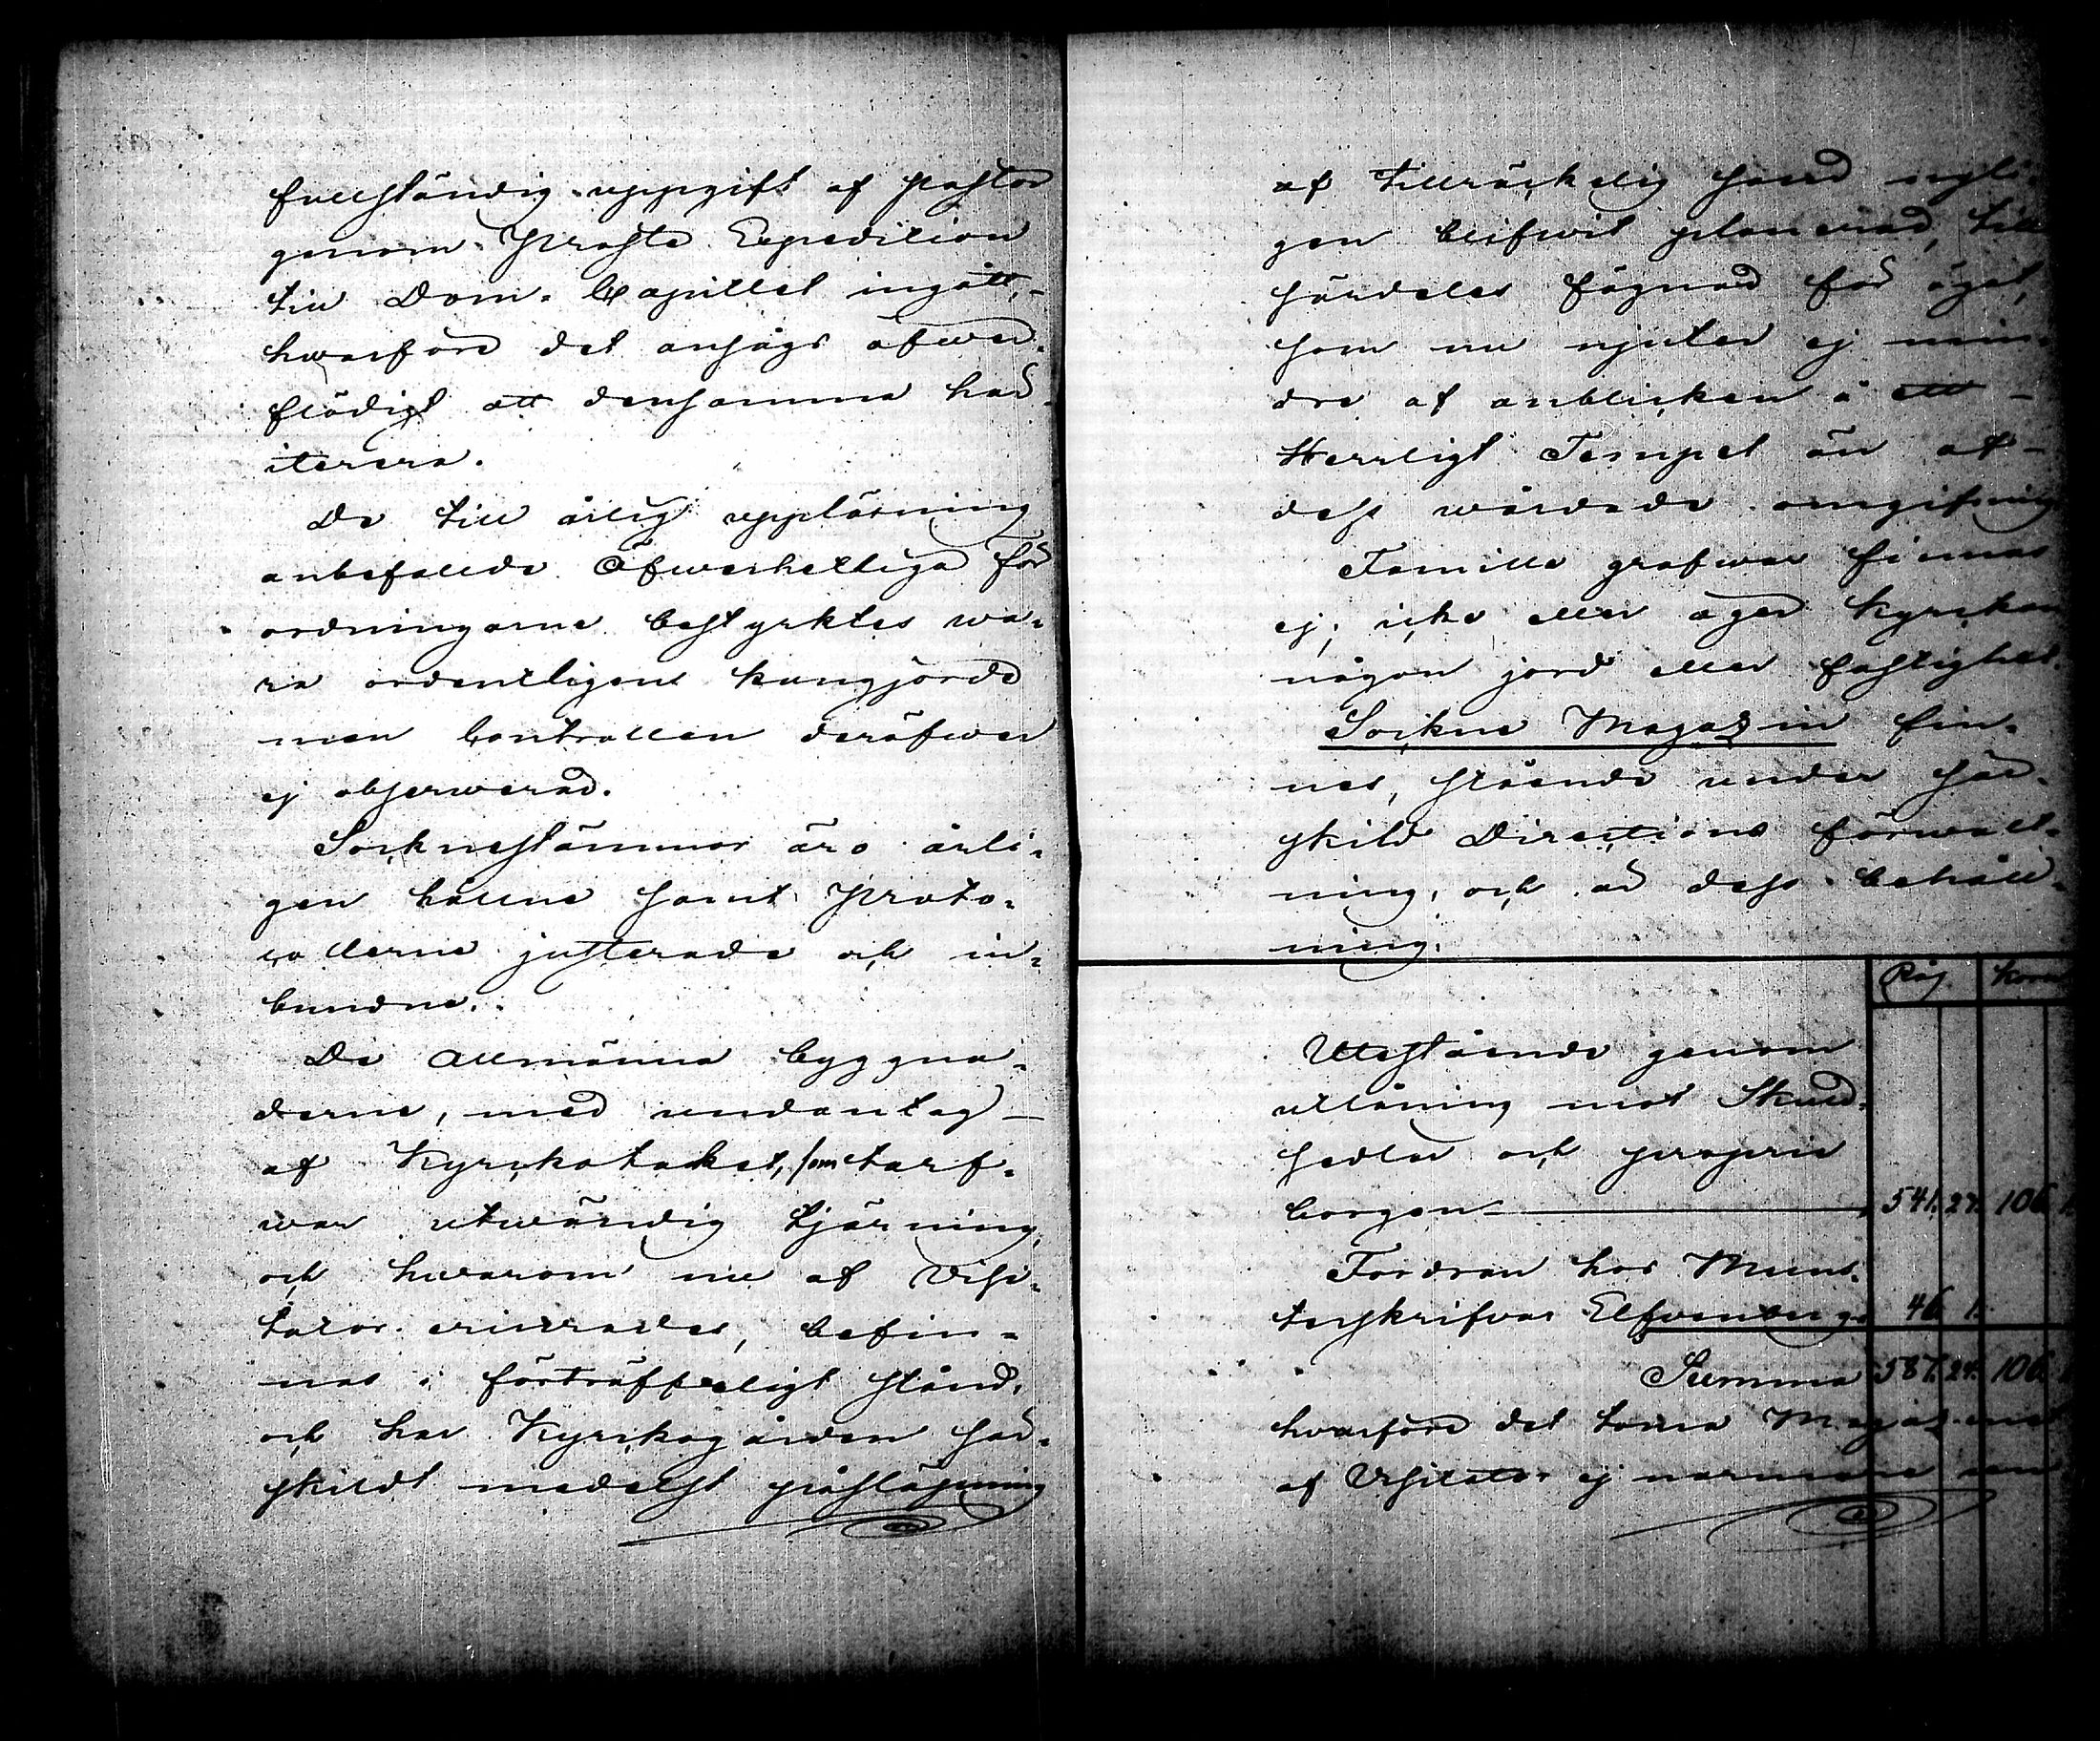 fullständig uppgift af Pastor
genom Proste Expedition
till Dom-Capitlet ingått,
hwarföre det ansågs öfwer-
flödigt att densamma här
iterera.
De till årlig uppläsning
anbefallde Öfwerhetliga för
ordningarne bestyrktes wa-
ra ordentligen kungjorde
men Controllen deröfwer
ej observerad.
Socknestämmor äro årli-
gen hållne samt Proto-
collerne justerade och in-
bundne.
De Allmänna byggna-
derne, med undantag
af Kyrckotaket, som tarf-
war utwändig tjärning,
och hwarom nu af Visi-
tator erinrades, befin-
nas i förträffeligt stånd,
och har Kyrckogården sär-
skildt medelst påslöpning
af tillräckelig sand nyli-
gen blifwit planerad, till
särdeles fägnad för ögat,
som nu njuter ej min-
dre af anblicken å ett
Herrligt Tempel än af
dess wårdade omgifning
Famille grafwar finnas
ej, icke eller äger Kyrckan
någon jord eller fastighet.
Sockne Magazin fin-
nes, stående under sär-
skild Directions förwalt-
ning, och är dess behåll-
ning.
Råg. Korn
Utestående genom
utlåning mot Skuld-
sedlar och proprie
borgen 541. 27. 106 1.
Fordran hos Muns-
terskrifvar Elfvenberg 46 1.
Summa 587. 28. 106
hvarföre det tomma Magazinet
af Visitator ej närmare